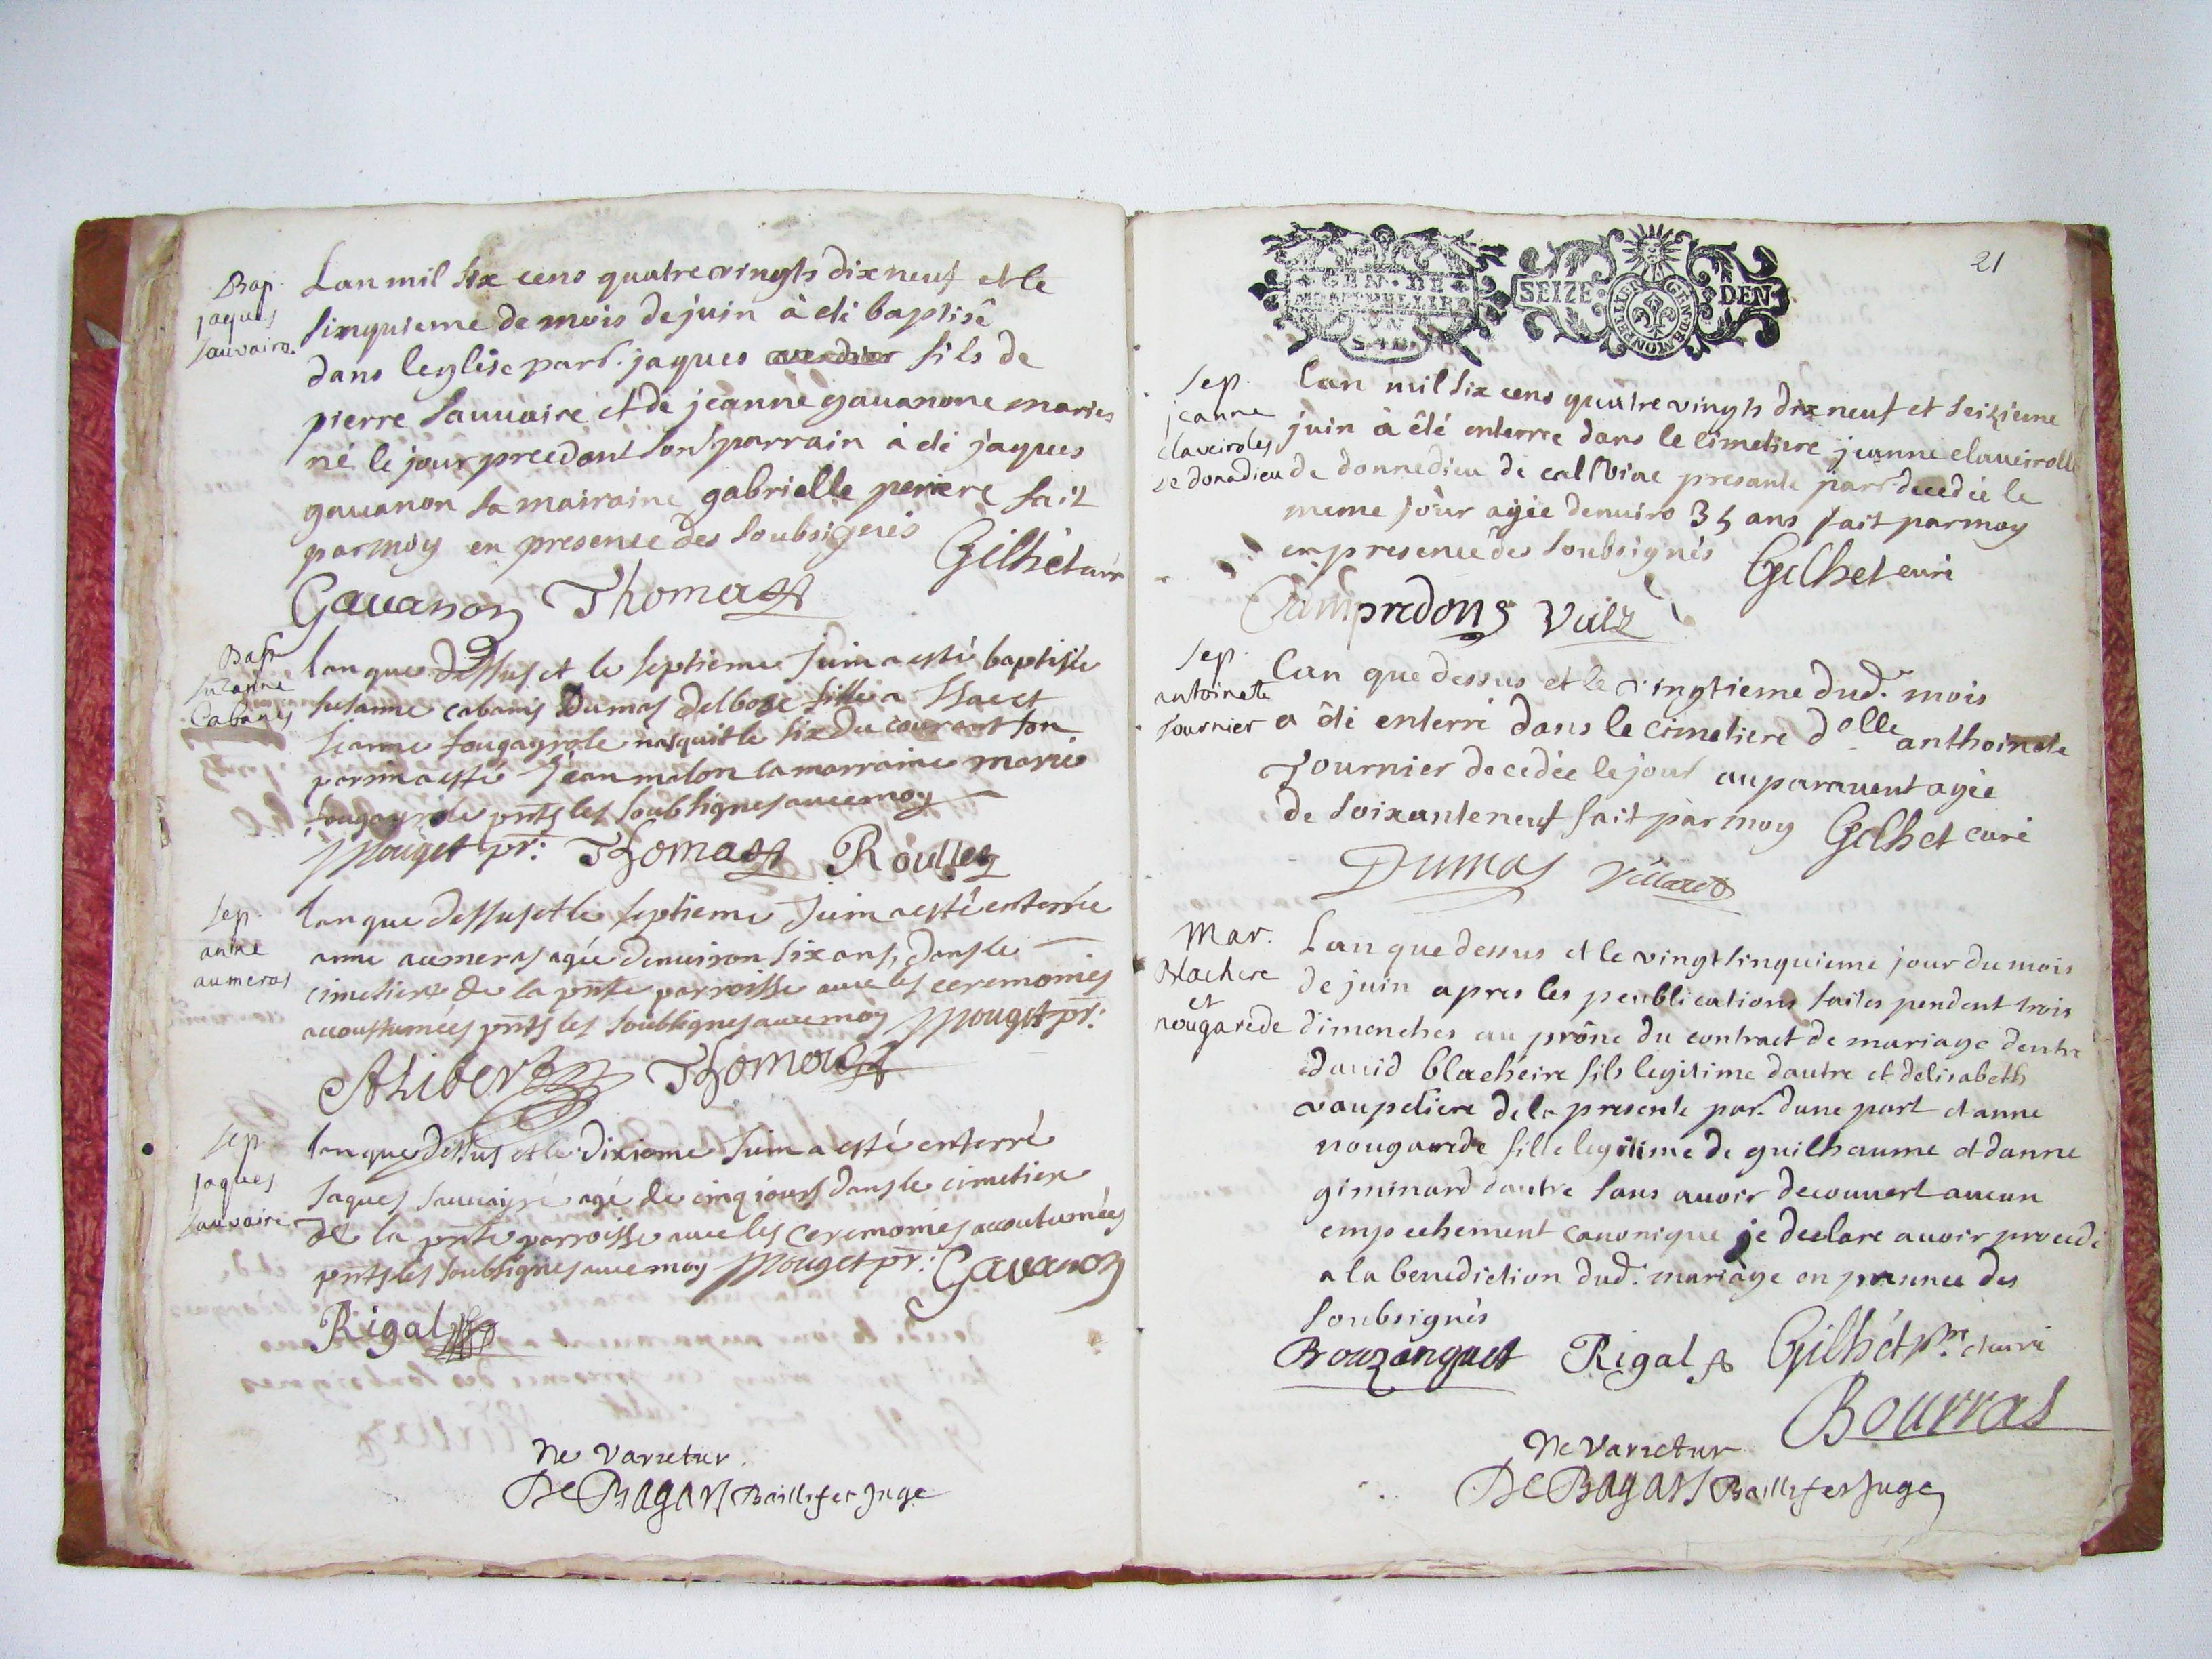 Bap.
jaques
sauvaire
Lan mil six cens quatre vingts dix neuf et le
sinquieme de mois de juin à eté baptisé
dans leglise parr. jaques fils de
pierre sauvaire et de jeanne gavanone maries
né le jour precedant son parrain à eté jaques
gavanon sa mairaine gabrielle periere fait
par moy en presence des soubsignés
Gilhet curé
Gavanon Thomas
Bap
suzanne
Cabanes
lan que dessus et le septieme Juin a esté baptisée
susanne cabanis Dumas delbosc fille a Isac et
Jeanne fougayrole nasquit le six du courant son
parrin a esté Jean molon la marraine marie
fougayrole pnts les soubsignes avec moy
pouget pr: Thomas Roussez
sep.
anne
aumeras
lan que dessus et le septieme Juin a esté enterrée
anne aumeras agée denuiron six ans, dans le
cimetiere de la pnte parroisse avec les ceremonies
accoustumées pnts les soubsignes avec moy pouget pr:
Aliber Thomas
sep.
jaques
sauvaire
lan que dessus et le dixieme Juin a esté enterré
Jaques sauvayre agé de cinq iours dans le cimetiere
de la pnte parroisse avec les ceremonies accoutumées
pnts les soubsignes avec moy pouget pr: Gavanon
Rigal
Ne Varietur
De Bagars Baillif et Juge
21
GEN · DE
MONTPELLIER
UN
S 4 D.
SEIZE DEN
MONTPELLIER GEN DE
sep.
jeanne
claveiroles
de donadieu
Lan mil six cens quatre vingts dix neuf et seizieme
juin à êté enterree dans le cimetiere jeanne claveirolle
de donnedieu de calviac presante parr. decedée le
meme jour agée denuiro 35 ans fait par moy
en presence des soubsignés Gilhet curé
Campredons Valz
sep.
antoinette
fournier
Lan que dessus et le vingtieme dud. mois
a êté enterré dans le cimetiere dolle anthoinete
fournier decedée le jour auparauent agée
de soixante neuf fait par moy Gilhet curé
Dumas Villaret
Mar.
Blachere
et
nougarede
Lan que dessus et le vingt sinquieme jour du mois
de juin apres les peublications faites pendent trois
dimenches au prône du contract de mariage dentre
dauid blacheire fils legitime dautre et delisabeth
vaupeliere de la presente par. dune part et anne
nougarede fille legitime de guilhaume et danne
giminard dautre sans auoir decouuert aucun
empechement canonique je declare auoir procedé
a la benediction dud. mariage en presence des
soubsignés
Bouzanquet Rigal Gilhet pr. et curé
Bourras
Ne Varietur
De Bagars Baillif et Juge